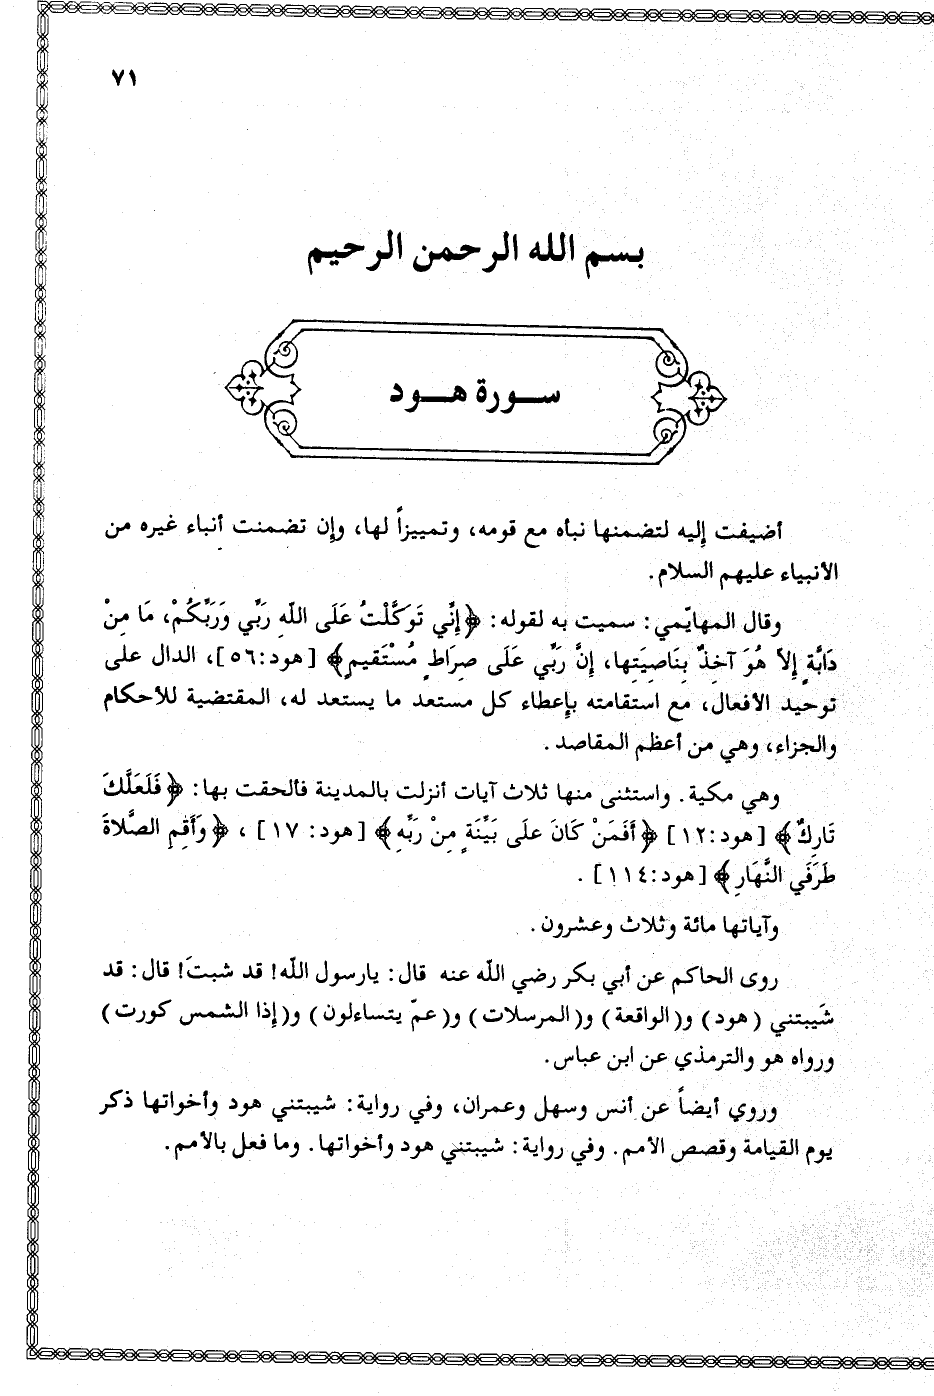 ٧١
بسم الله الرحمن الرحيم
سورة هود
أضيفت إليه لتضمنها نبأه مع قومه، وتمييزاً لها، وإن تضمنت أنباء غيره من
الأنبياء عليهم السلام.
وقال المهايّمي: سميت به لقوله: ﴿إِنِّي تَوَكَّلْتُ عَلَى اللَّهِ رَبِّي وَرَبِّكُمْ، مَا مِنْ
دَابَّةٍ إِلاَّ هُوَ آخِذٌ بِنَاصِيَتِها، إِنَّ رَبِّي عَلَى صِرَاطٍ مُسْتَقِيمٍ﴾ [هود:٥٦]، الدال على
توحيد الأفعال، مع استقامته بإعطاء كل مستعد ما يستعد له، المقتضية للأحكام
والجزاء، وهي من أعظم المقاصد.
وهي مكية. واستثنى منها ثلاث آيات أنزلت بالمدينة فألحقت بها: ﴿فَلَعَلَّكَ
تَارِكٌ﴾ [هود:١٢] ﴿أَفَمَنْ كَانَ عَلَى بَيِّنَةٍ مِنْ رَبِّهِ﴾ [هود: ١٧]، ﴿وَأَقِمِ الصَّلاَةَ
طَرَفَيِ النَّهَارِ﴾ [هود:١١٤].
وآياتها مائة وثلاث وعشرون.
روى الحاكم عن أبي بكر رضي اللّه عنه قال: يارسول اللّه! قد شبتَ! قال: قد
شَيبتني (هود) و(الواقعة) و(المرسلات) و(عمّ يتساءلون) و(إذا الشمس كورت)
ورواه هو والترمذي عن ابن عباس.
وروي أيضاً عن أنس وسهل وعمران، وفي رواية: شيبتني هود وأخواتها ذكر
يوم القيامة وقصص الأمم. وفي رواية: شيبتني هود وأخواتها. وما فعل بالأمم.